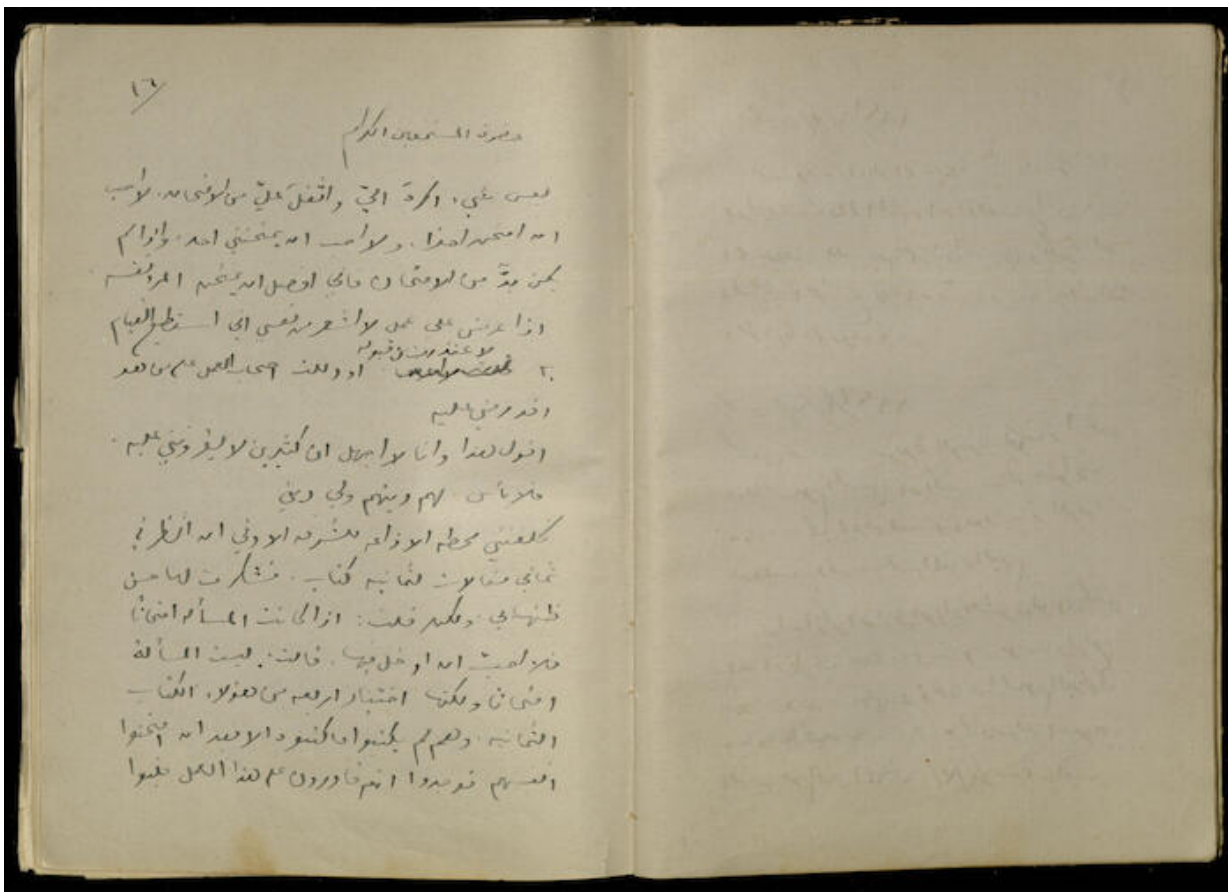 ١٦
حضرات المستمعين الكرام
ليس شيء اكره اليّ واثقل عليّ من الامتحان. لا احب
ان امتحن احدا، ولا احب ان يمتحنني احد. واذا لم
يكن بدّ من الامتحان فاني افضل ان يمتحن المرء نفسه
اذا عرض علي عمل لا اشعر من نفسي اني استطيع القيام
لاعتذرت عن قبوله
به او دللت اصحاب العمل على من هو
اقدر مني عليه
اقول هذا وانا لا اجهل ان كثيرين لا يقرونني عليه.
فلا بأس. لهم دينهم ولي ديني
كلفتني محطه الاذاعه للشرق الادنى ان انظر في
ثماني مقالات لثمانيه كتاب. فشكرت لها حسن
ظنها بي. ولكن قلت: اذا كانت المسألة امتحانا
فلا احب ان ادخل فيها. قالت: ليست المسألة
امتحانا ولكنها اختيار اربعه من هؤلاء الكتاب
الثمانيه. وهم لم يكتبوا ما كتبوه الا بعد ان امتحنوا
انفسهم فوجدوا انهم قادرون على هذا العمل فلبوا